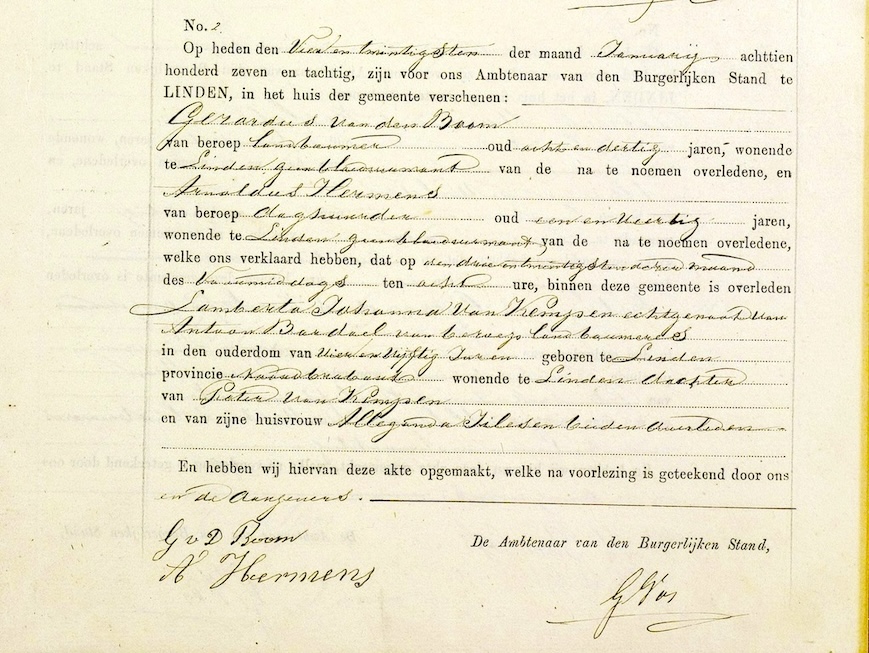 No. 2.
Op heden den Vier en twintigsten der maand Januarij achttien
honderd zeven en tachtig, zijn voor ons Ambtenaar van den Burgerlijken Stand te
LINDEN, in het huis der gemeente verschenen:
Gerardus van den Boom
van beroep landbouwer oud acht en dertig jaren, wonende
te Linden geen bloedverwant van de na te noemen overledene, en
Arnoldus Hermens
van beroep daghuurder oud een en veertig jaren,
wonende te Linden geen bloedverwant van de na te noemen overledene,
welke ons verklaard hebben, dat op den drie en twintigsten dezer maand
des Voormiddags ten acht ure, binnen deze gemeente is overleden
Lamberta Johanna Van Kempen echtgenoot van
Antoon Bardoel van beroep landbouweres
in den ouderdom van Vier en Vijftig Jaren geboren te Linden
provincie Noordbrabant wonende te Linden dochter
van Peter Van Kempen
en van zijne huisvrouw Allegonda beiden overleden
En hebben wij hiervan deze akte opgemaakt, welke na voorlezing is geteekend door ons
en de aangevers.
G v D Boom
De Ambtenaar van den Burgerlijken Stand,
A Hermens
G Vos